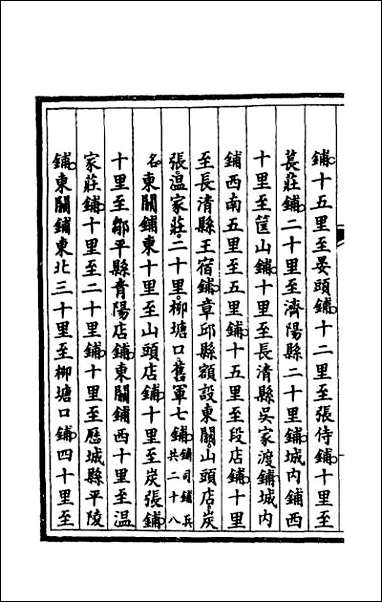 鋪十五里至晏頭鋪十二里至張侍鋪十里至
萇莊鋪二十里至濟陽縣二十里鋪城内鋪西
十里至筐山鋪十里至長清縣吳家渡鋪城内
鋪西南五里至五里鋪十五里至段店鋪十里
至長清縣王宿鋪章邱縣額設東關山頭店炭
張溫家莊二十里柳塘口舊軍七鋪鋪司鋪兵共二十八
名東關鋪東十里至山頭店鋪十里至炭張鋪
十里至鄒平縣青陽店鋪東關鋪西十里至溫
家莊鋪十里至二十里鋪十里至歷城縣平陵
鋪東關鋪東北三十里至柳塘口鋪四十里至